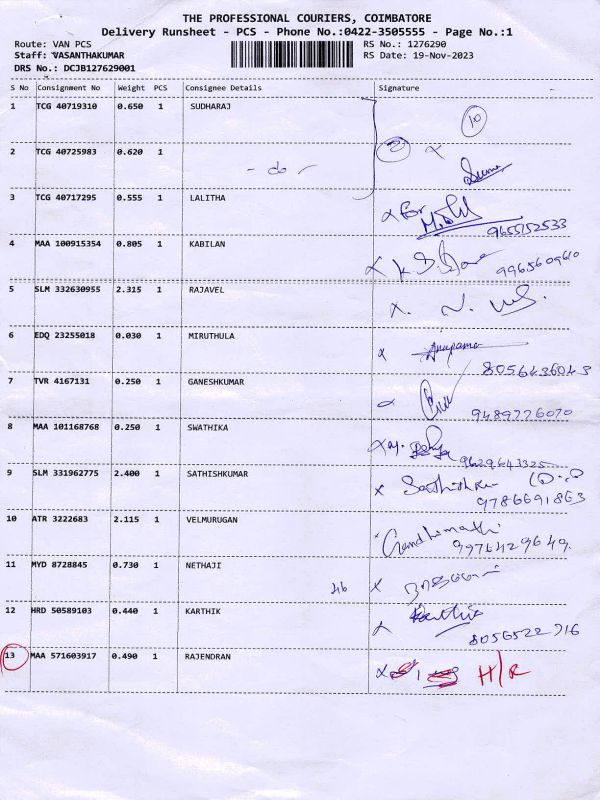 THE PROFESSIONAL COURIERS, COIMBATORE
Delivery Runsheet - PCS - Phone No.:0422-3505555 - Page No.:1
Route: VAN PCS
RS No.: 1276290
Staff: VASANTHAKUMAR
RS Date: 19-Nov-2023
DRS No.: DCJB127629001
S No Consignment No Weight PCS Consignee Details Signature
1 TCG 40719310 0.650 1 SUDHARAJ 10
2 TCG 40725983 0.620 1 - do - 2 x
3 TCG 40717295 0.555 1 LALITHA x For
9655152533
4 MAA 100915354 0.805 1 KABILAN x
9965609610
5 SLM 332630955 2.315 1 RAJAVEL x.
6 EDQ 23255018 0.030 1 MIRUTHULA x Anupama
8056436043
7 TVR 4167131 0.250 1 GANESHKUMAR
9489776070
8 MAA 101168768 0.250 1 SWATHIKA x
9629643325
9 SLM 331962775 2.400 1 SATHISHKUMAR x Sathishku
9786691863
10 ATR 3222683 2.115 1 VELMURUGAN Gandhimathi
9976429649.
11 MYD 8728845 0.730 1 NETHAJI x
12 HRD 50589103 0.440 1 KARTHIK x Karthik
8056522916
13 MAA 571603917 0.490 1 RAJENDRAN x H/R